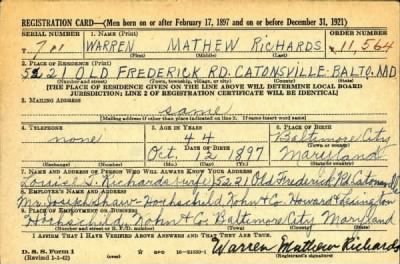 REGISTRATION CARD—(Men born on or after February 17, 1897 and on or before December 31, 1921)
SERIAL NUMBER 1. NAME (Print) ORDER NUMBER
WARREN MATHEW RICHARDS 11,564
(First) (Middle) (Last)
2. PLACE OF RESIDENCE (Print)
5221 OLD FREDERICK RD. CATONSVILLE-BALTO. MD.
(Number and street) (Town, township, village, or city) (County) (State)
[THE PLACE OF RESIDENCE GIVEN ON THE LINE ABOVE WILL DETERMINE LOCAL BOARD
JURISDICTION; LINE 2 OF REGISTRATION CERTIFICATE WILL BE IDENTICAL]
3. MAILING ADDRESS
same
[Mailing address if other than place indicated on line 2. If same insert word same]
4. TELEPHONE 5. AGE IN YEARS 6. PLACE OF BIRTH
none 44 Baltimore City
DATE OF BIRTH (Town or county)
Oct. 12 1897 Maryland
(Exchange) (Number) (Mo.) (Day) (Yr.) (State or country)
7. NAME AND ADDRESS OF PERSON WHO WILL ALWAYS KNOW YOUR ADDRESS
Louise S. Richards (wife) 5221 Old Frederick Rd. Catonsville
8. EMPLOYER'S NAME AND ADDRESS
Mr. Joseph Shaw- Hochschild Kohn & Co. Howard & Lexington
9. PLACE OF EMPLOYMENT OR BUSINESS
Hochschild, Kohn & Co. Baltimore City Maryland
(Number and street or R. F. D. number) (Town) (County) (State)
I AFFIRM THAT I HAVE VERIFIED ABOVE ANSWERS AND THAT THEY ARE TRUE.
D. S. S. Form 1
(Revised 1-1-42) (over) GPO 16—21630-1 Warren Mathew Richards